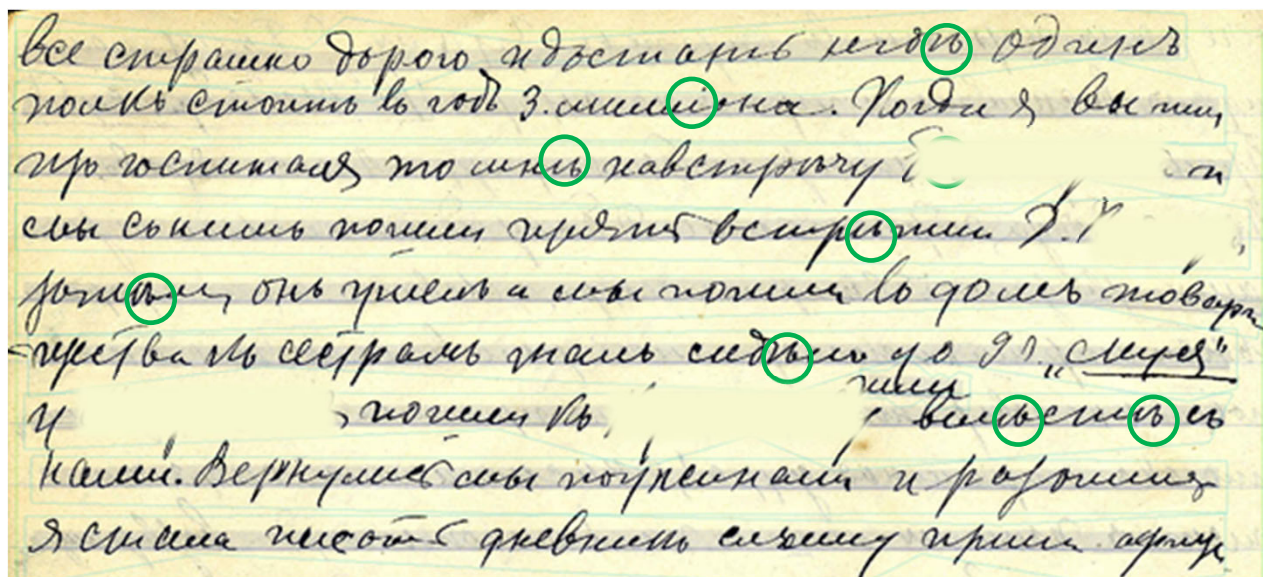 все страшно дорого и достать негдѣ Одинъ
полкъ стоить въ годъ 3. милліона. Когда я вышли
изъ госпиталя то мнѣ навстрѣчу и
мы съ нимъ пошли встрѣтили
онъ ушелъ а мы пошли въ домъ товари
щества къ сестрамъ сидѣли до 9 ч. „Муся“
и пошли къ шли вмѣстѣ съ
нами. Вернулись мы поужинали и разошлись
я стала писать дневникъ слышу пришли